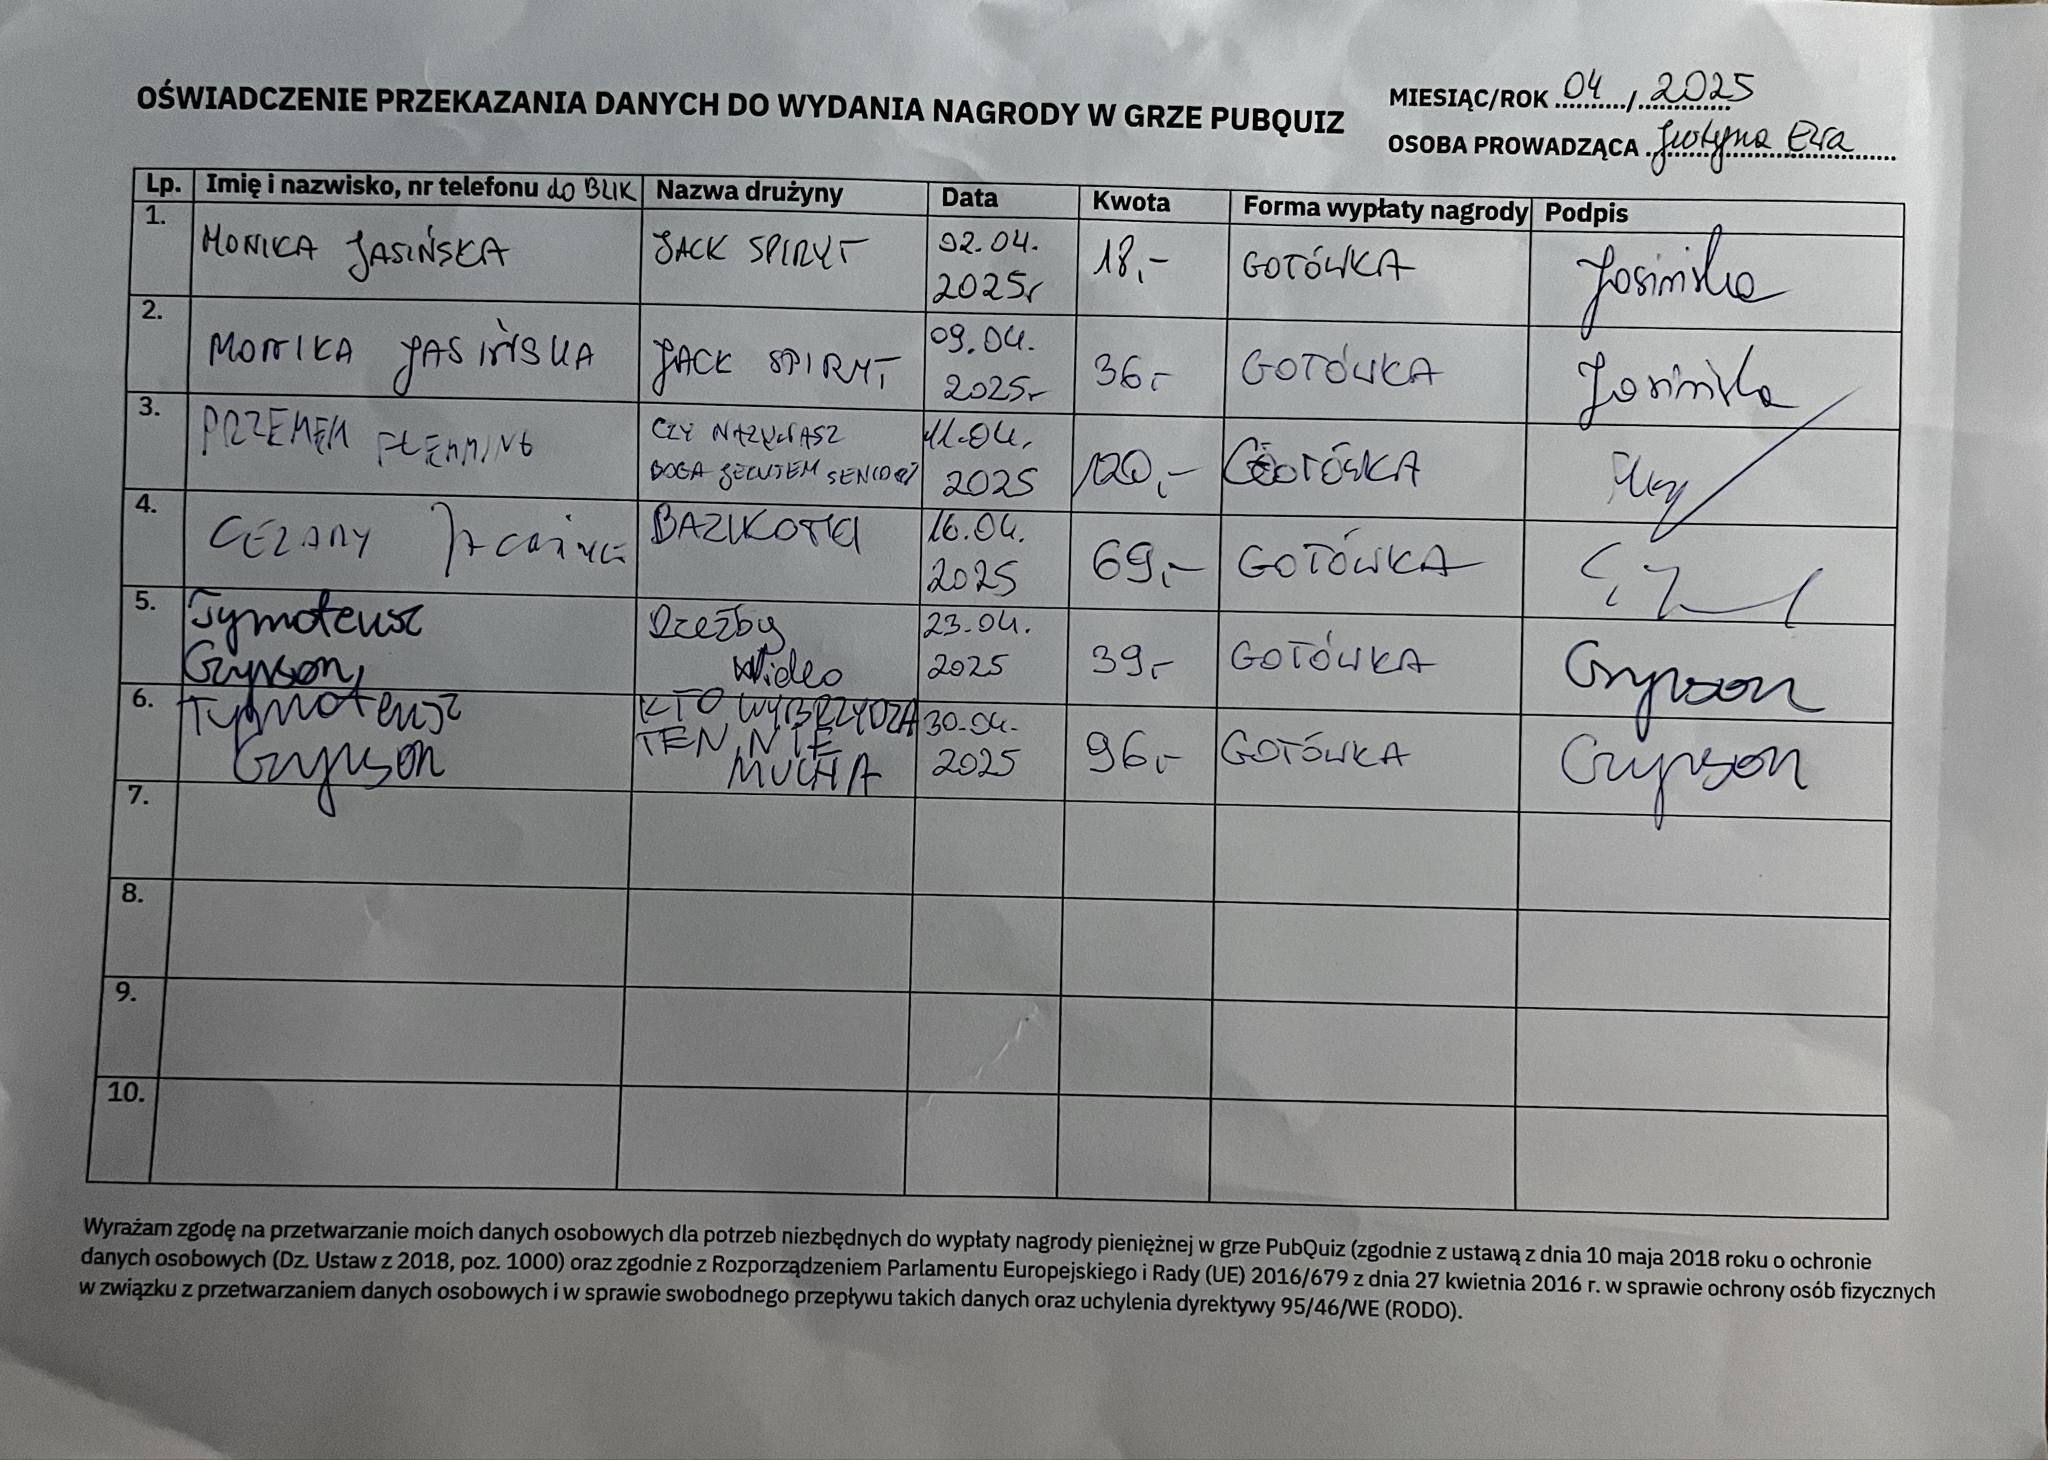 OŚWIADCZENIE PRZEKAZANIA DANYCH DO WYDANIA NAGRODY W GRZE PUBQUIZ
MIESIĄC/ROK 04 / 2025
OSOBA PROWADZĄCA Justyna Ewa
Lp. Imię i nazwisko, nr telefonu do BLIK Nazwa drużyny Data Kwota Forma wypłaty nagrody Podpis
1. MONIKA JASIŃSKA JACK SPIRYT 02.04. 2025r 18,- GOTÓWKA Jasińska
2. MONIKA JASIŃSKA JACK SPIRYT 09.04. 2025r 36,- GOTÓWKA Jasińska
3. PRZEMEK FLEMMING CZY NAZYWASZ BOGA 11.04. 2025 120,- GOTÓWKA
4. CEZARY BAZIKOTKI 16.04. 2025 69,- GOTÓWKA
5. Tymoteusz Grynson Rzeźby Wideo 23.04. 2025 39,- GOTÓWKA Grynson
6. Tymoteusz Grynson KTO WYBRZYDZA TEN NIE MUCHA 30.04. 2025 96,- GOTÓWKA Grynson
7.
8.
9.
10.
Wyrażam zgodę na przetwarzanie moich danych osobowych dla potrzeb niezbędnych do wypłaty nagrody pieniężnej w grze PubQuiz (zgodnie z ustawą z dnia 10 maja 2018 roku o ochronie
danych osobowych (Dz. Ustaw z 2018, poz. 1000) oraz zgodnie z Rozporządzeniem Parlamentu Europejskiego i Rady (UE) 2016/679 z dnia 27 kwietnia 2016 r. w sprawie ochrony osób fizycznych
w związku z przetwarzaniem danych osobowych i w sprawie swobodnego przepływu takich danych oraz uchylenia dyrektywy 95/46/WE (RODO).